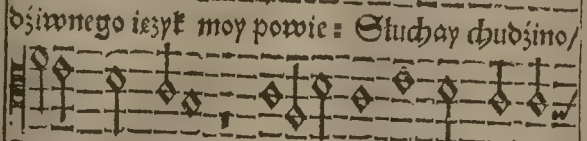 dziwnego ięzyk moy powie: Słuchay chudzino/